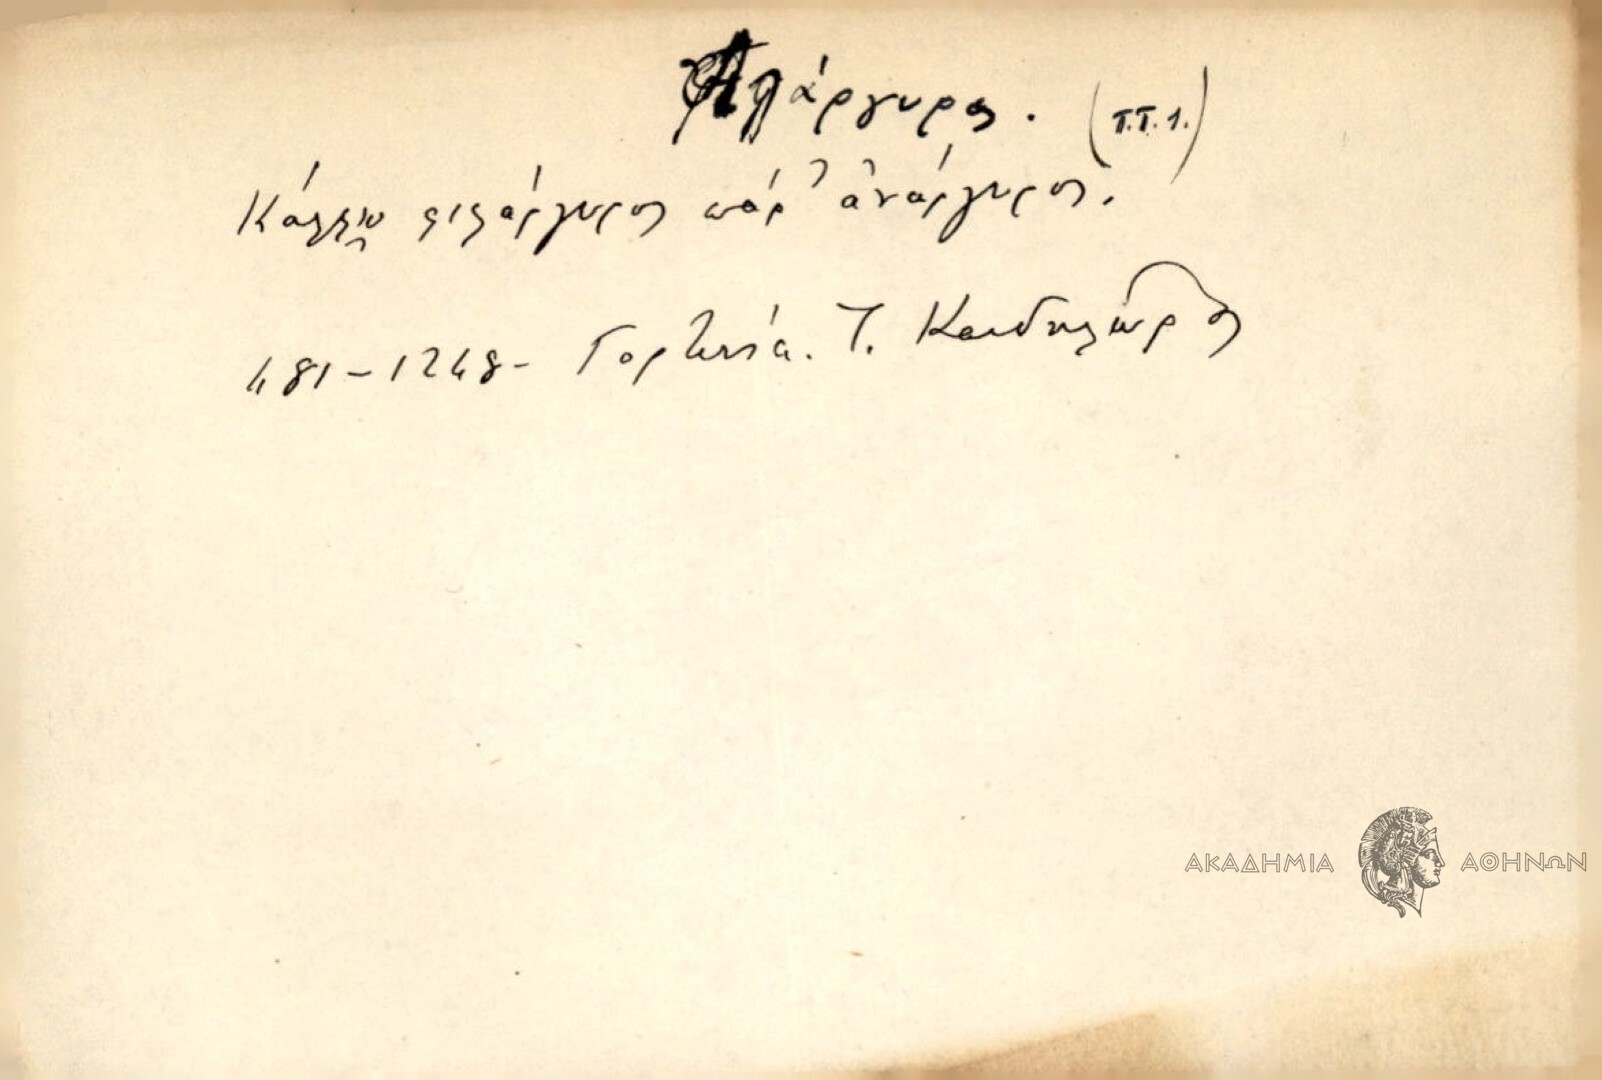 Φιλάργυρος. (Π.Τ. 1.)
Κάλλιο φιλάργυρος πάρ' ἀνάργυρος.
481-1248- Γορτυνία. Τ. Κανδηλώρος
ΑΚΑΔΗΜΙΑ ΑΘΗΝΩΝ